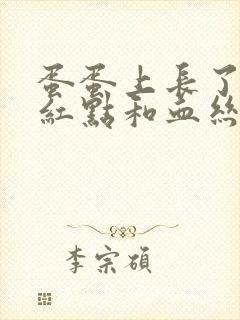 蛋蛋上長了
紅點和血絲
李宗碩